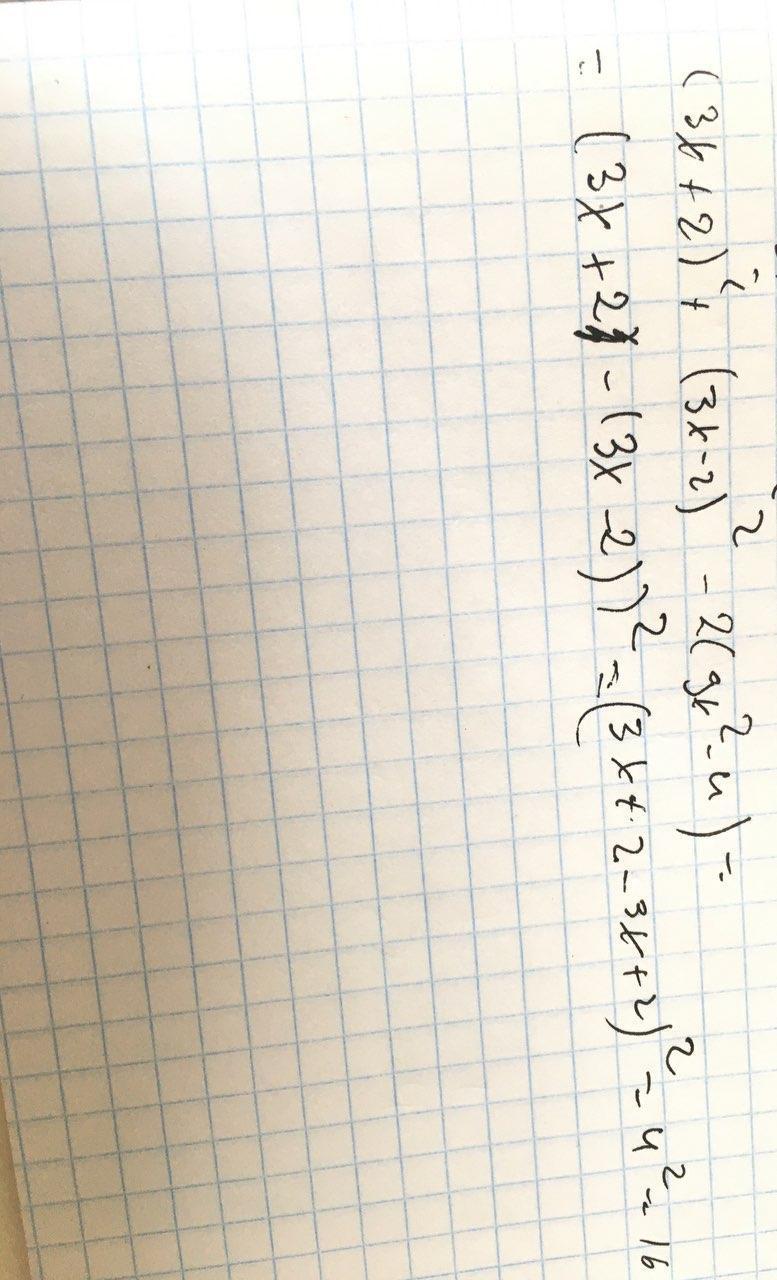 (3x+2)² + (3x-2)² - 2(9x²-4) =
= (3x+2 - (3x-2))² = (3x+2-3x+2)² = 4² = 16